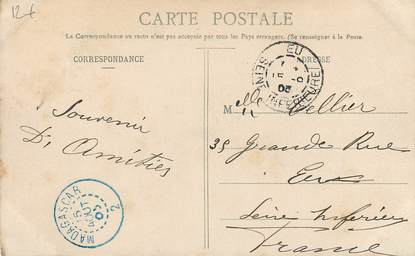 12 €
CARTE POSTALE
La Correspondance au recto n'est pas acceptée par tous les Pays étrangers. (Se renseigner à la Poste.
CORRESPONDANCE
ADRESSE
EU
SEINE INFERIEURE
Souvenir
D'Amitiés
Melle Vellier
35 Grande Rue
Eu
Seine Inférieure
France
MADAGASCAR
15
AOUT
05
2